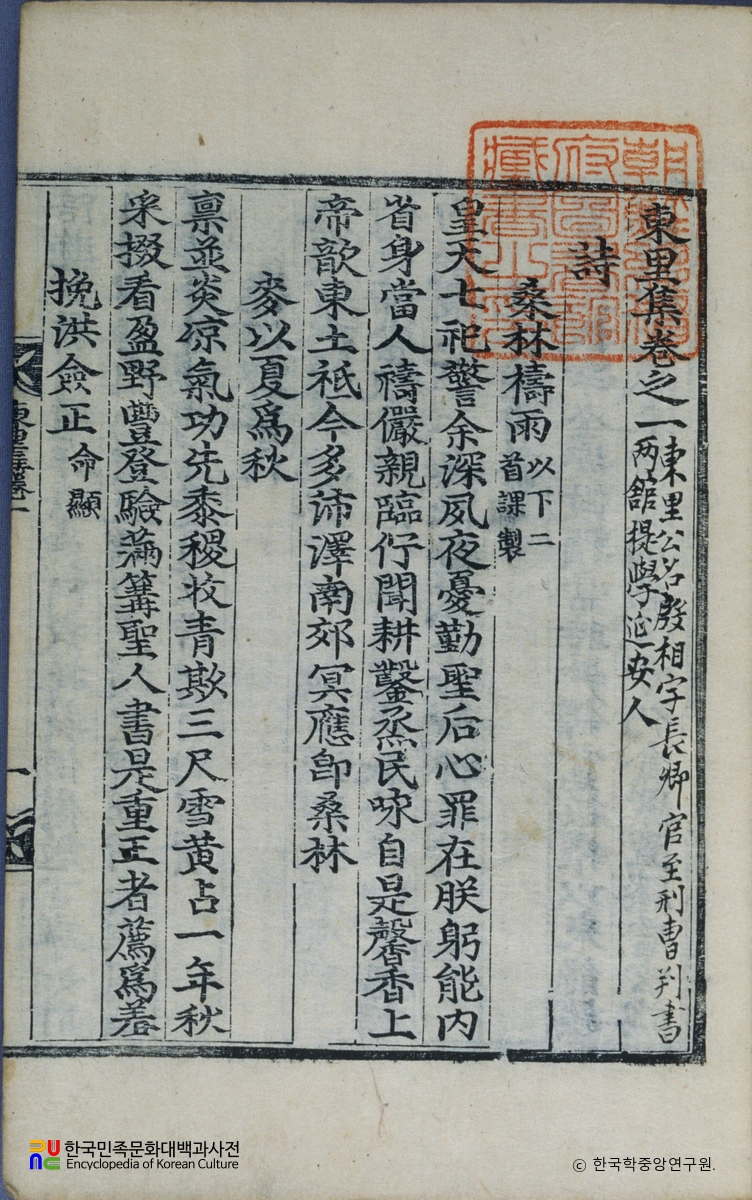 東里集卷之一
東里公名殷相字長卿官至刑曹判書
兩館提學延安人
詩
桑林禱雨 以下二首課製
皇天七祀警余深夙夜憂勤聖后心罪在朕躬能內
省身當人禱儼親臨佇聞耕鑿烝民咏自是馨香上
帝歆東土祗今多沛澤南郊冥應卽桑林
麥以夏爲秋
禀並炎凉氣功先黍稷收青欺三尺雪黃占一年秋
采掇看盈野豐登驗滿篝聖人書是重正者薦爲羞
挽洪僉正 命顯
東里集卷一
一
朝鮮總督府圖書館藏書之印
한국민족문화대백과사전
Encyclopedia of Korean Culture
ⓒ 한국학중앙연구원.